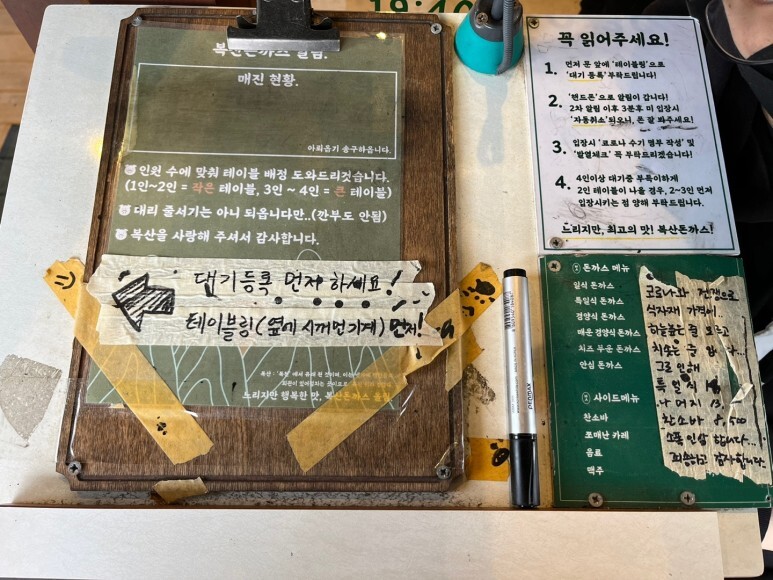 19:40
복산돈까스 알림.
매진 현황.
아뢰옵기 송구하옵니다.
인원 수에 맞춰 테이블 배정 도와드리겠습니다.
(1인~2인 = 작은 테이블, 3인 ~ 4인 = 큰 테이블)
대리 줄서기는 아니 되옵니다만..(깐부도 안됨)
복산을 사랑해 주셔서 감사합니다.
대기등록 먼저 하세요!
테이블링(옆에 시꺼먼기계) 먼저!
느리지만 행복한 맛, 복산돈까스 올림.
꼭 읽어주세요!
1. 먼저 문 앞에 '테이블링'으로
'대기 등록' 부탁드립니다!
2. '핸드폰'으로 알림이 갑니다!
2차 알림 이후 3분후 미 입장시
'자동취소' 되오니, 폰 잘 봐주세요!
3. 입장시 '코로나 수기 명부 작성' 및
'발열체크' 꼭 부탁드리겠습니다!
4. 4인이상 대기중 부득이하게
2인 테이블이 나올 경우, 2~3인 먼저
입장시키는 점 양해 부탁드립니다.
느리지만, 최고의 맛! 복산돈까스!
돈까스 메뉴
일식 돈까스
특일식 돈까스
경양식 돈까스
매운 경양식 돈까스
치즈 부운 돈까스
안심 돈까스
사이드메뉴
찬소바
조매난 카레
음료
맥주
코로나와 전쟁으로
식자재 가격이
하늘높은 줄 모르고
치솟는 중 입니다...
그로 인해
특일식
나머지 13.
찬소바 8.500
소폭 인상 합니다...
죄송하고 감사합니다.